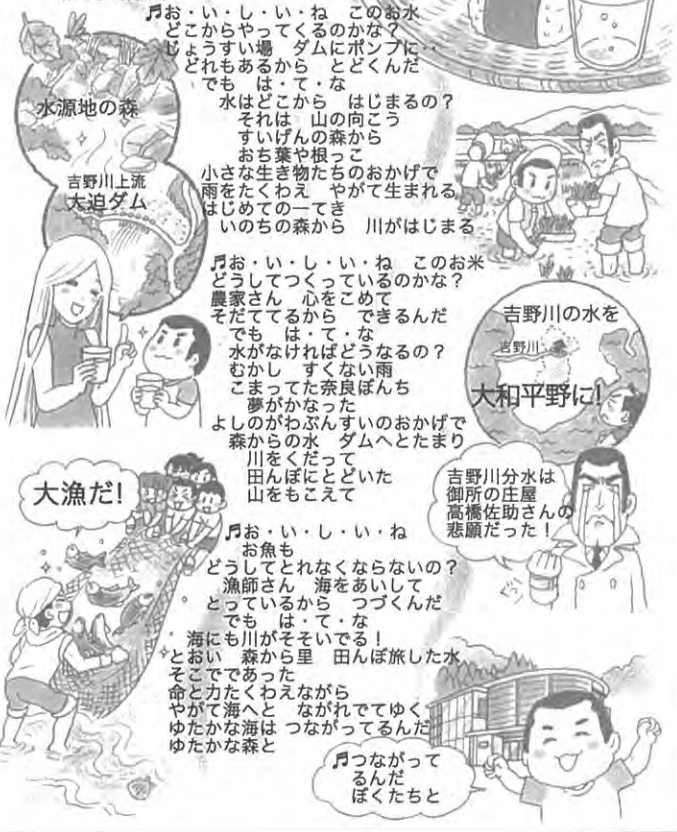 ♬お・い・し・い・ね　このお水
どこからやってくるのかな？
じょうすい場　ダムにポンプに・・
どれもあるから　とどくんだ
でも　は・て・な
水はどこから　はじまるの？
それは　山の向こう
すいげんの森から
おち葉や根っこ
小さな生き物たちのおかげで
雨をたくわえ　やがて生まれる
はじめての一てき
いのちの森から　川がはじまる
水源地の森
吉野川上流
大迫ダム
♬お・い・し・い・ね　このお米
どうしてつくっているのかな？
農家さん　心をこめて
そだててるから　できるんだ
でも　は・て・な
水がなければどうなるの？
むかし　すくない雨
こまってた奈良ぼんち
夢がかなった
よしのがわぶんすいのおかげで
森からの水　ダムへとたまり
川をくだって
田んぼにとどいた
山をもこえて
吉野川の水を
吉野川
大和平野に!
吉野川分水は
御所の庄屋
高橋佐助さんの
悲願だった！
ぐっ
大漁だ!
♬お・い・し・い・ね
お魚も
どうしてとれなくならないの？
漁師さん　海をあいして
とっているから　つづくんだ
でも　は・て・な
海にも川がそそいでる！
とおい　森から里　田んぼ旅した水
そこでであった
命と力たくわえながら
やがて海へと　ながれでてゆく
ゆたかな海は つながってるんだ
ゆたかな森と
♬つながって
るんだ
ぼくたちと